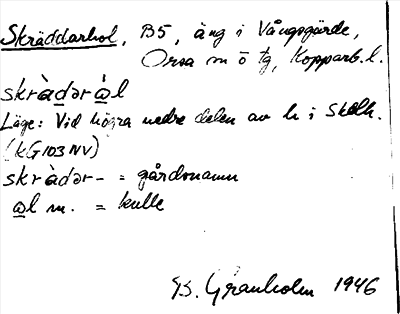 Skräddarhol, B5, äng i Vångsgärde,
Orsa sn ö tg, Kopparb. l.
skràdər àl
Läge: Vid högra nedre delen av h i Skålh.
(kG103NV)
skràdər- = gårdsnamn
al m. = kulle
B. Granholm 1946